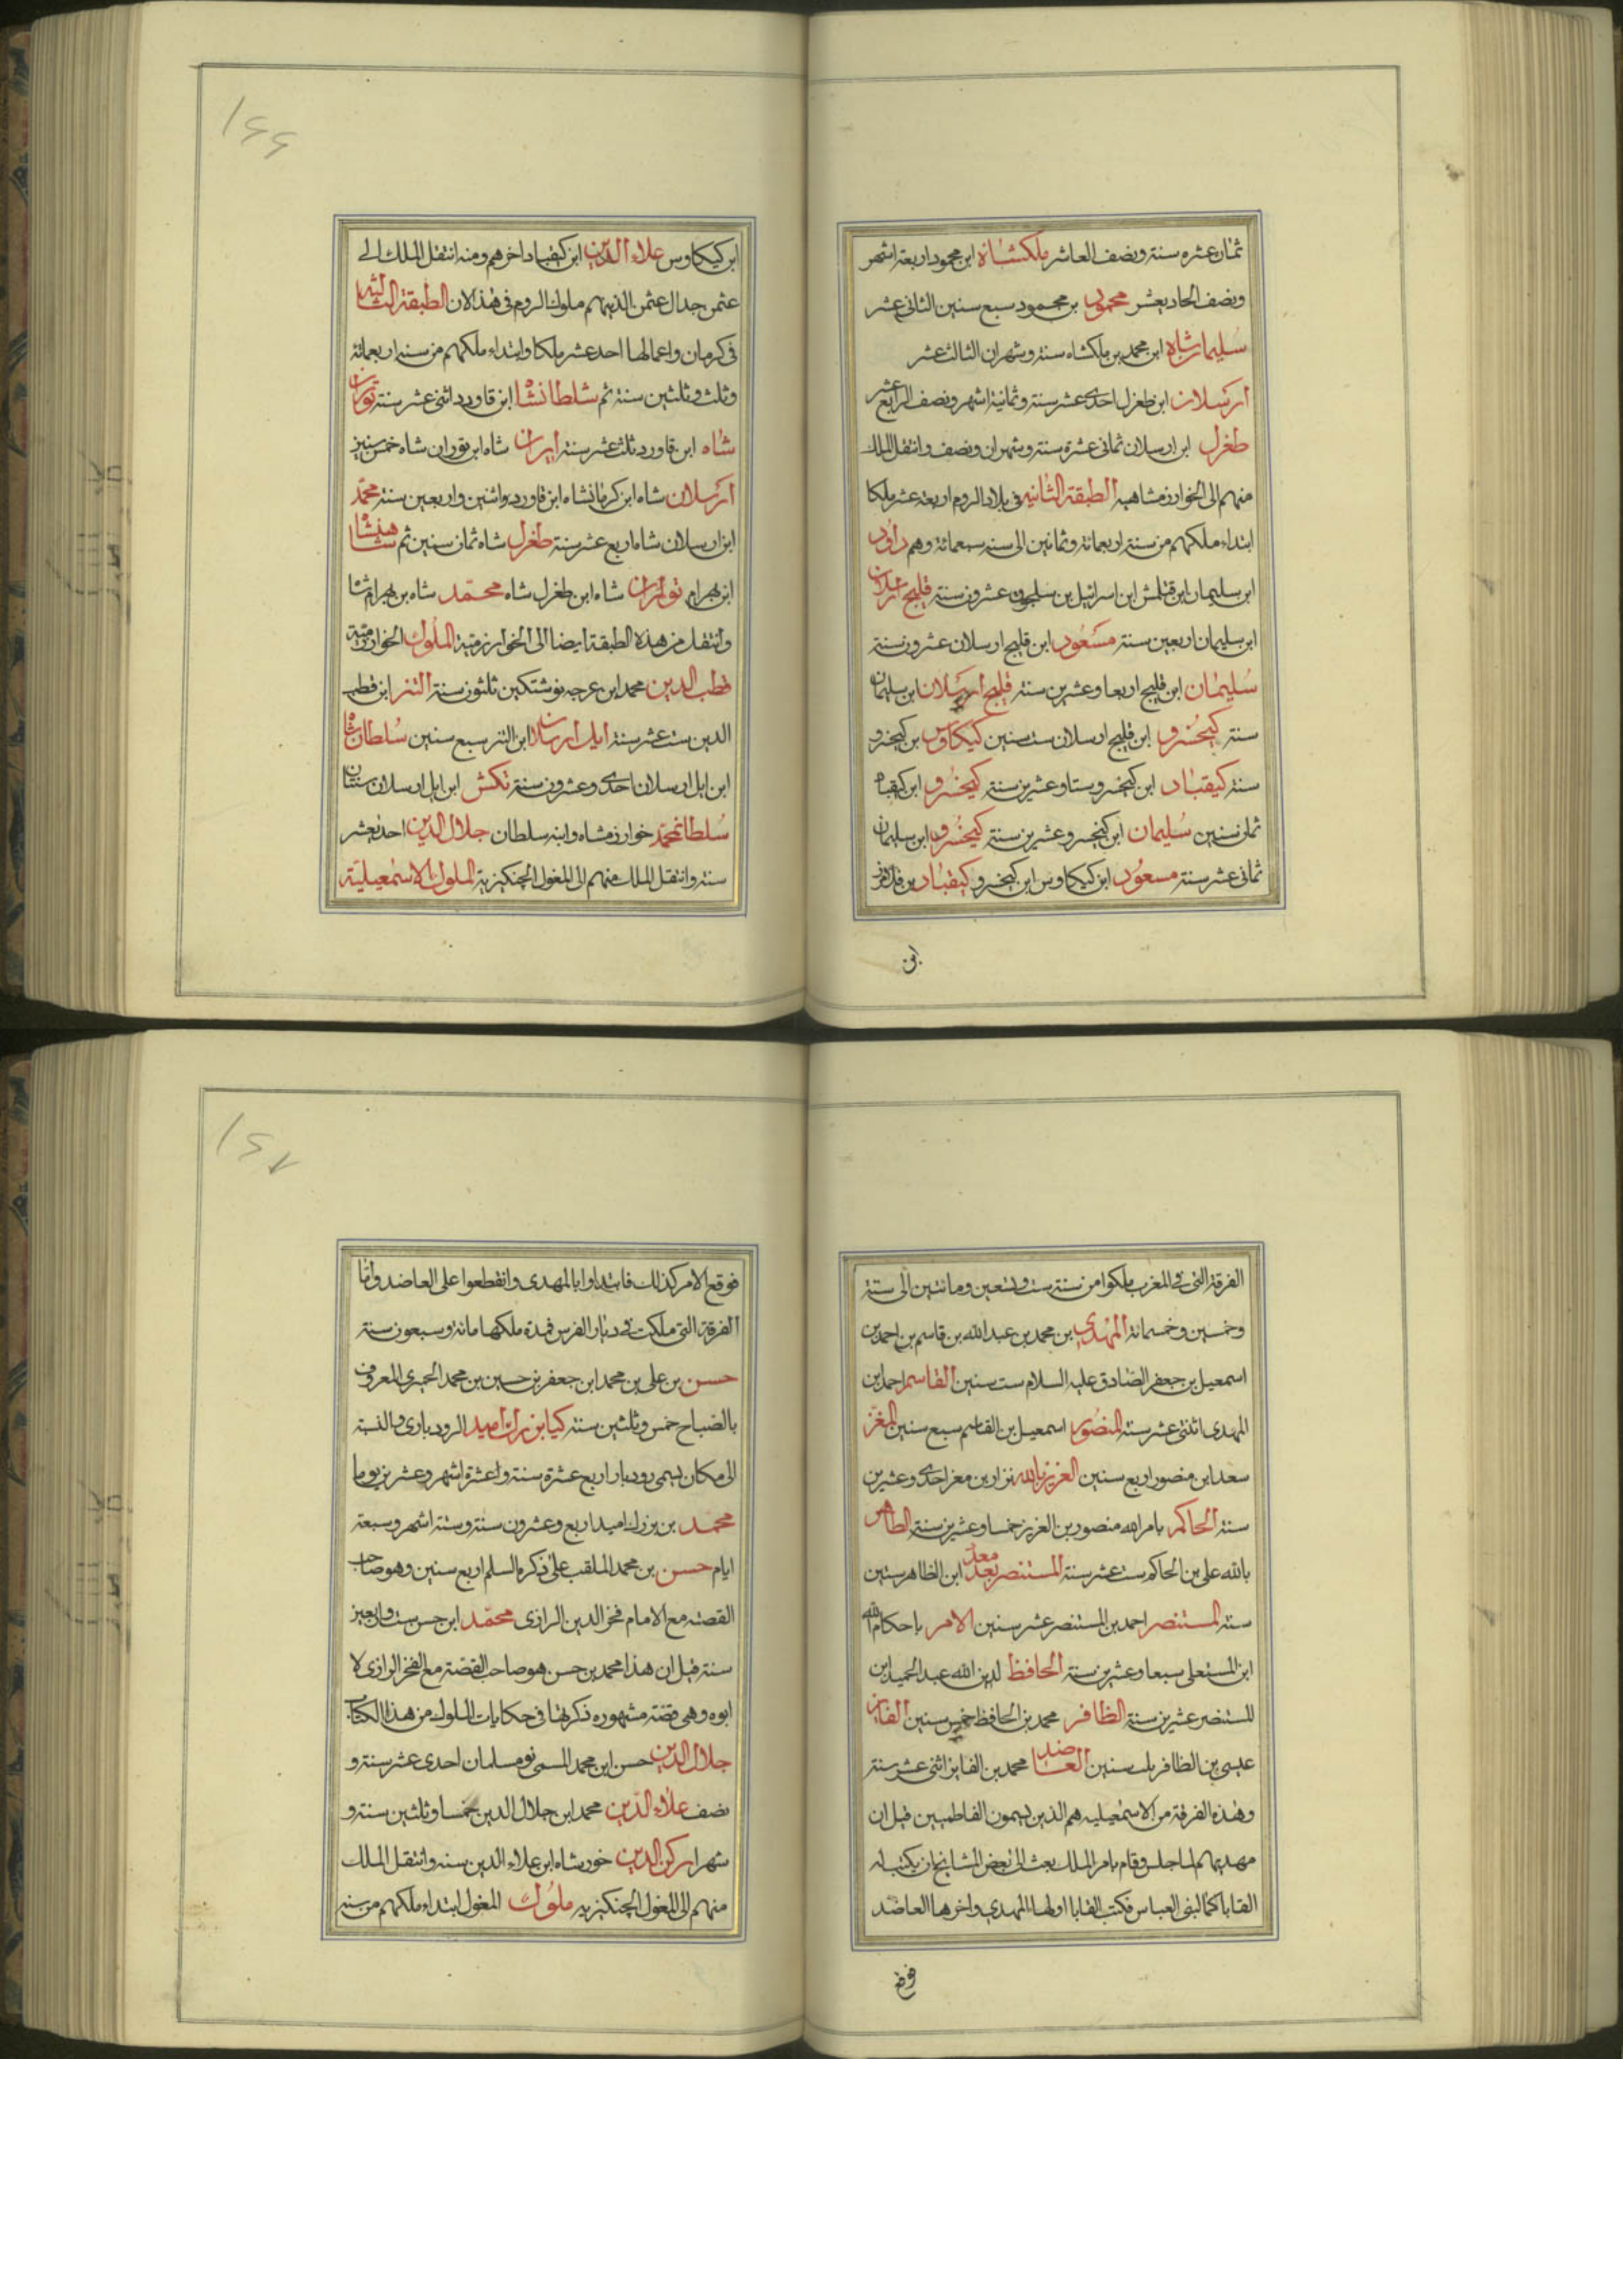 ثمان عشره سنة ونصف العاشر ملكشاه ابن محمود اربعة اشهر
ونصف الحاديعشر محمود بن محمود سبع سنين الثانى عشر
سليمان شاه ابن محمد بن ملكشاه سنة وشهران الثالث عشر
ارسلان ابن طغرل احدى عشر سنة وثمانية اشهر ونصف الرابع عشر
طغرل ابن ارسلان ثمانى عشرة سنة وشهران ونصف وانتقل الملك
منهم الى الخوارزمشاهيه الطبقة الثانيه فى بلاد الروم اربعة عشر ملكا
ابتداء ملكهم من سنة اربعمائة وثمانين الى سنة سبعمائة وهم داود
ابن سليمان ابن قتلمش ابن اسرائيل بن سلجوق عشرون سنة قليج ارسلان
ابن سليمان اربعين سنة مسعود ابن قليج ارسلان عشرون سنة
سليمان ابن قليج اربعا وعشرين سنة قليج ارسلان ابن سليمان
سنة كيخسرو ابن قليج ارسلان ست سنين كيكاوس بن كيخسرو
سنة كيقباد ابن كيخسرو ستا وعشرين سنة كيخسرو ابن كيقباد
ثمان سنين سليمان ابن كيخسرو عشرين سنة كيخسرو ابن سليمان
ثمانى عشر سنة مسعود ابن كيكاوس ابن كيخسرو كيقباد بن فرامرز
ابن
١٤٤
ابن كيكاوس علاء الدين ابن كيقباد اخرهم ومنه انتقل الملك الى
عثمن جد ال عثمن الذينهم ملوك الروم فى هذا الان الطبقة الثالثه
فى كرمان واعمالها احد عشر ملكا وابتداء ملكهم من سنة اربعمائة
وثلث وثلثين سنة ثم سلطانشاه ابن قاورد اثنى عشر سنة توران
شاه ابن قاورد ثلث عشر سنة ايران شاه ابن توران شاه خمس سنين
ارسلان شاه ابن كرمانشاه ابن قاورد واثنين واربعين سنة محمد
ابن ارسلان شاه اربع عشر سنة طغرل شاه ثمان سنين ثم شاهنشاه
ابن بهرام توران شاه ابن طغرل شاه محمد شاه بن بهرام شاه
وانتقل من هذه الطبقة ايضا الى الخوارزمية الملوك الخوارزمية
قطب الدين محمد ابن عرجه نوشتكين ثلثون سنة التنز ابن قطب
الدين ست عشر سنة ايل ارسلان ابن التنز سبع سنين سلطان شاه
ابن ايل ارسلان احدى وعشرون سنة تكش ابن ايل ارسلان سنتان
سلطان محمد خوارزمشاه وابنه سلطان جلال الدين احد يعشر
سنة وانتقل الملك منهم الى المغول الچنكيزية الملوك الاسمعيلية
الفرقة التى فى المغرب ملكوا من سنة ست وتسعين ومائتين الى ستة
وخمسين وخمسمائة المهدى بن محمد بن عبد الله بن قاسم بن احمد بن
اسمعيل بن جعفر الصادق عليه السلام ست سنين القاسم احمد بن
المهدى اثنتى عشر سنة المنصور اسمعيل بن القاسم سبع سنين المعز
سعد ابن منصور اربع سنين العزيز بالله نزار بن معز احدى وعشرين
سنة الحاكم بامر الله منصور بن العزيز خمسا وعشرين سنة الظاهر
بالله على بن الحاكم ست عشر سنة المستنصر معد ابن الظاهر ستين
سنة المستنصر احمد بن المستنصر عشر سنين الامر باحكام الله
ابن المستعلى سبعا وعشرين سنة الحافظ لدين الله عبد الحميد ابن
المستنصر عشرين سنة الظافر محمد بن الحافظ خمس سنين الفايز
عيسى بن الظافر ست سنين العاضد محمد بن الفايز اثنى عشر سنة
وهذه الفرقة من الاسمعيليه هم الذين يسمون الفاطميين قيل ان
مهديهم لما جلس وقام بامر الملك بعث الى بعض المشايخ ان يكتب له
القابا كما لبنى العباس فكتب القابا اولها المهدى واخرها العاضد
فوقع
١٤٧
فوقع الامر كذلك فابتداوا بالمهدى وانقطعوا على العاضد واما
الفرقة التى ملكت فى ديار الفرس فمدة ملكها مائة وسبعون سنة
حسن بن على بن محمد ابن جعفر بن حسين بن محمد الحميرى المعروف
بالصباح خمس وثلثين سنة كيا بزرك اميد الرودبارى والنسبة
الى مكان يسمى رودبار اربع عشرة سنة واعشرة اشهر وعشرين يوما
محمد بن بزرك اميد اربع وعشرون سنة وستة اشهر وسبعة
ايام حسن بن محمد الملقب على ذكره السلم اربع سنين وهو صاحب
القصة مع الامام فخر الدين الرازى محمد ابن حسن ست واربعين
سنة قيل ان هذا محمد بن حسن هو صاحب القصة مع الفخر الرازى لا
ابوه وهى قصة مشهوره ذكرتها فى حكايات الملوك من هذا الكتاب
جلال الدين حسن ابن محمد المسمى نو مسلمان احدى عشر سنة و
نصف علاء الدين محمد ابن جلال الدين خمسا وثلثين سنة و
شهرا ركن الدين خورشاه ابن علاء الدين سنه وانتقل الملك
منهم الى المغول الچنكيزيه ملوك المغول ابتداء ملكهم من سنة